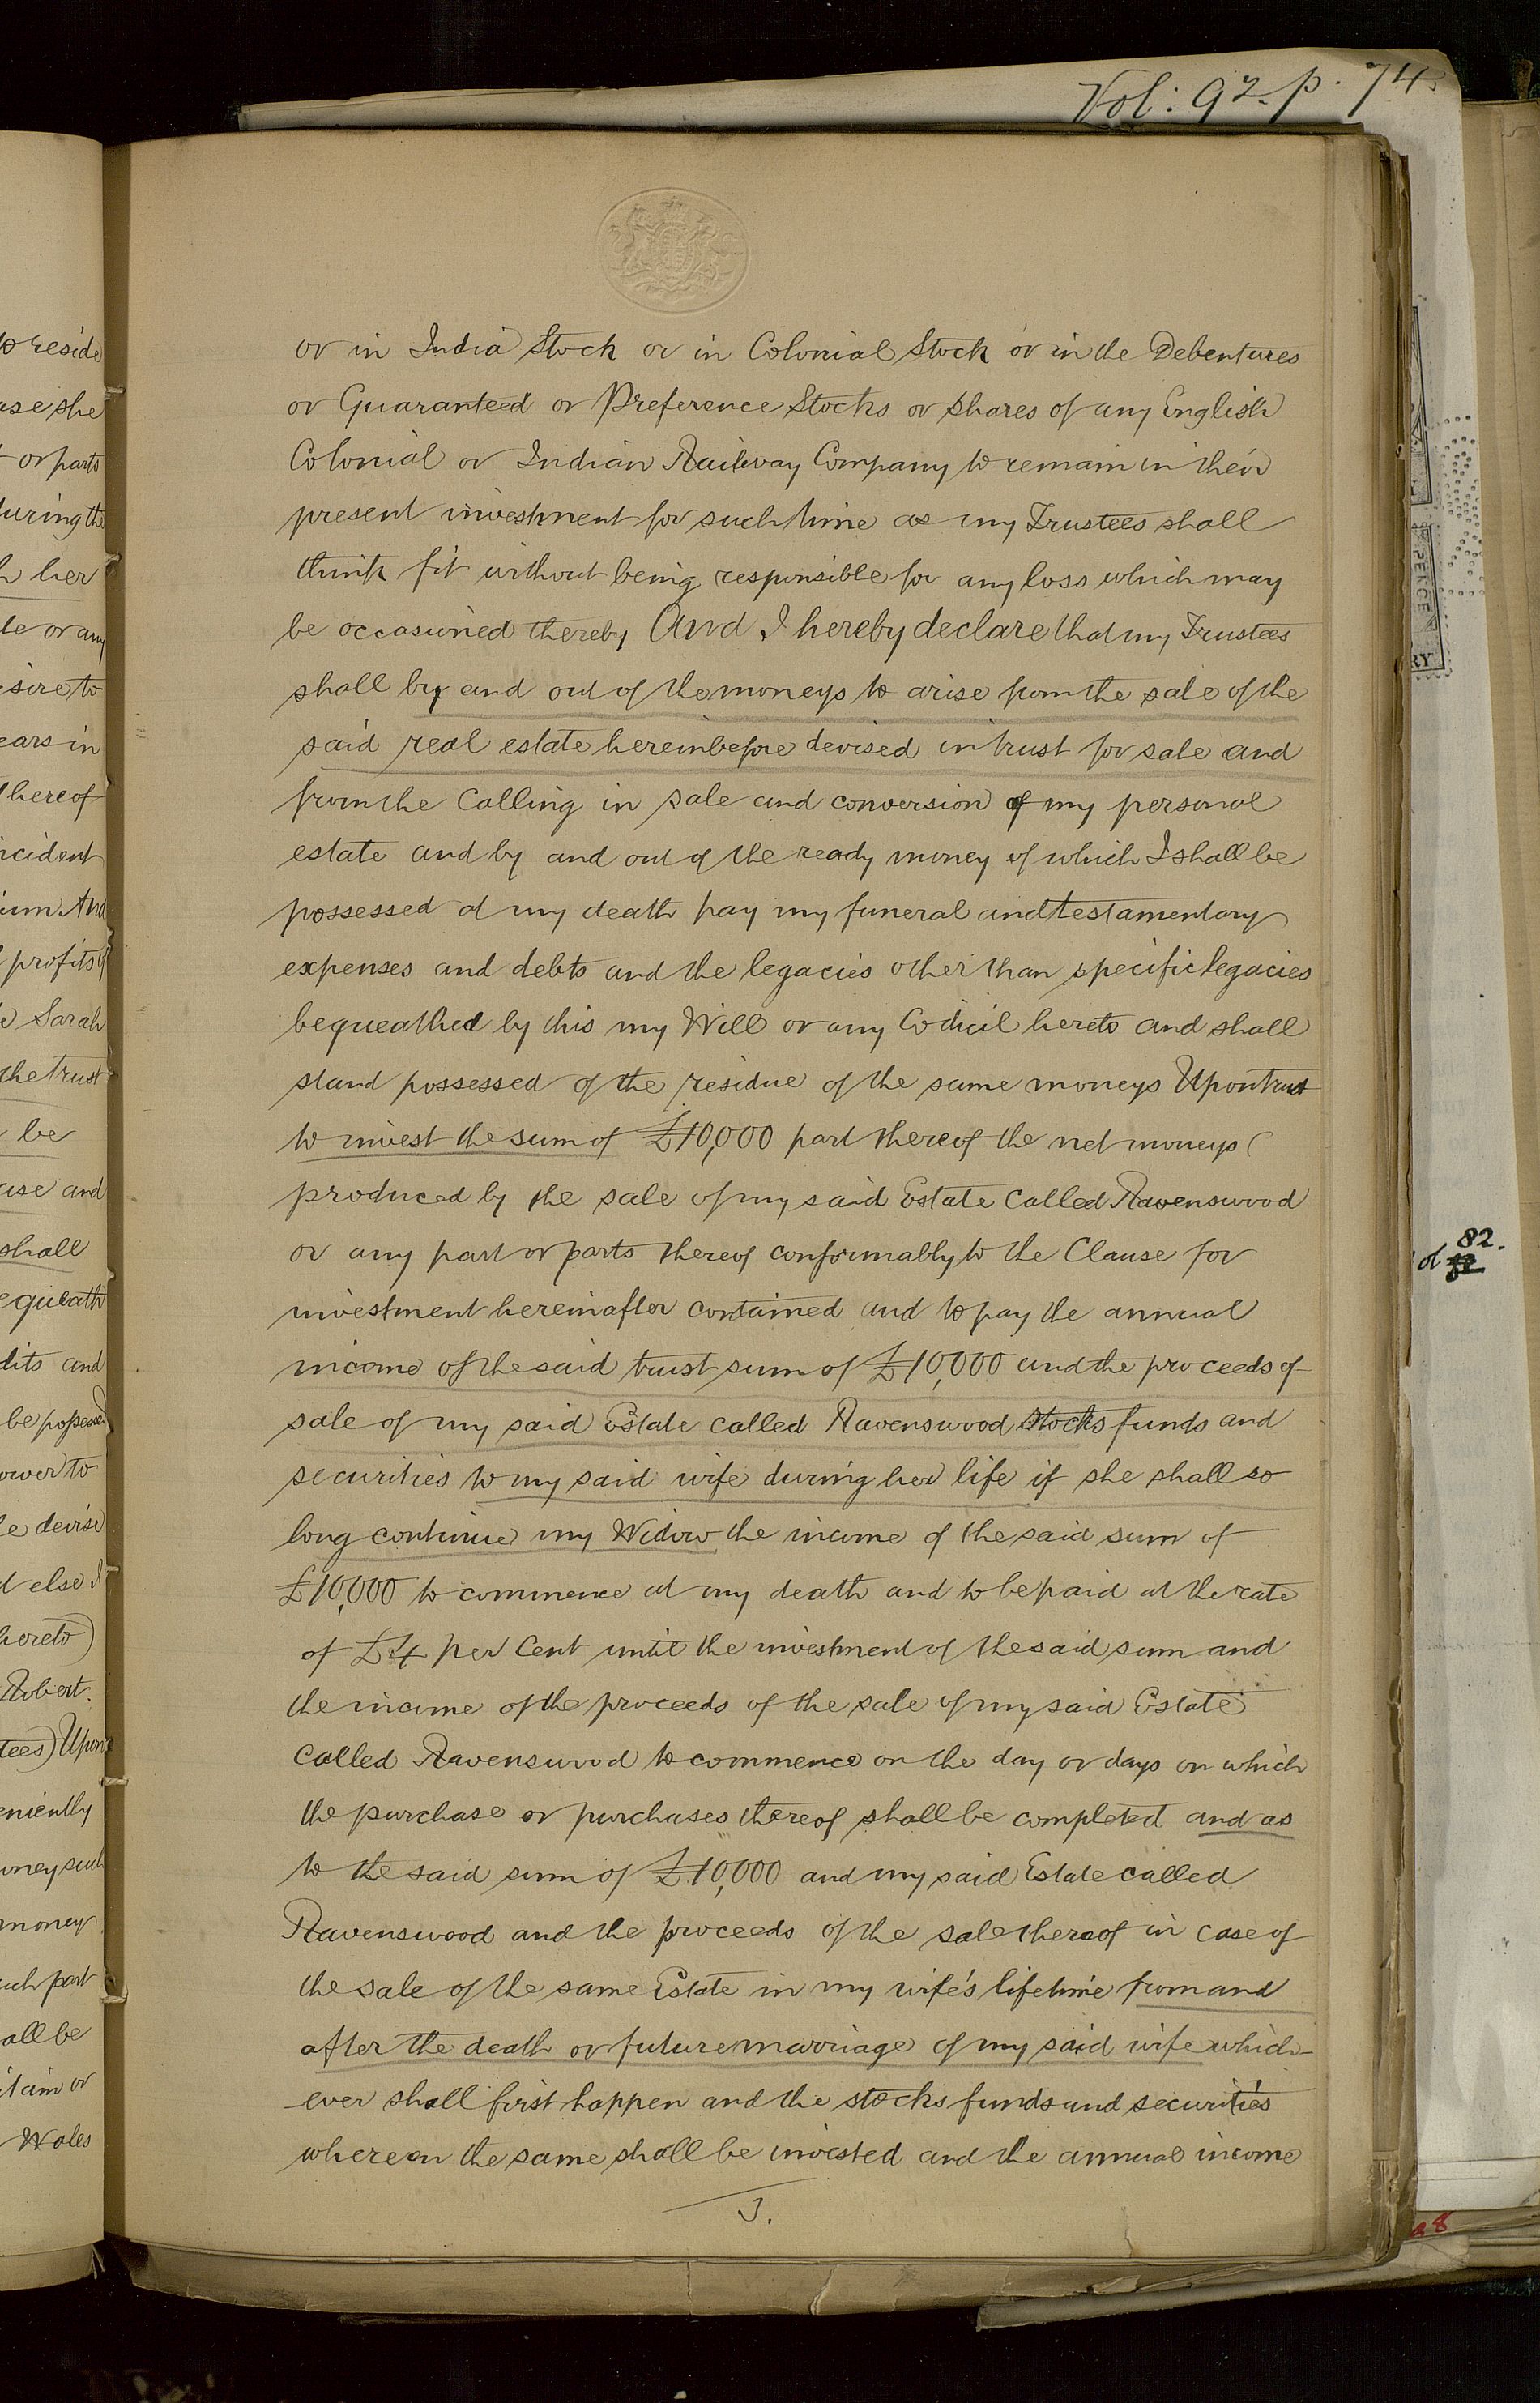 Vol: 92. p. 74.
or in India Stock or in Colonial Stock or in the Debentures
or Guaranteed or Preference Stocks or shares of any English
Colonial or Indian Railway Company to remain in their
present investment for such time as my Trustees shall
think fit without being responsible for any loss which may
be occasioned thereby And I hereby declare that my Trustees
shall by and out of the moneys to arise from the sale of the
said real estate hereinbefore devised in trust for sale and
from the Calling in sale and conversion of my personal
estate and by and out of the ready money of which I shall be
possessed at my death pay my funeral and testamentary
expenses and debts and the legacies other than specific legacies
bequeathed by this my Will or any Codicil hereto and shall
stand possessed of the residue of the same moneys Upon trust
to invest the sum of £10,000 part thereof the net moneys
produced by the sale of my said Estate called Ravenswood
or any part or parts thereof conformably to the Clause for
investment hereinafter contained and to pay the annual
income of the said trust sum of £10,000 and the proceeds of
sale of my said Estate called Ravenswood stocks funds and
securities to my said wife during her life if she shall so
long continue my Widow the income of the said sum of
£10,000 to commence at my death and to be paid at the rate
of £4 per Cent until the investment of the said sum and
the income of the proceeds of the sale of my said Estate
called Ravenswood to commence on the day or days on which
the purchase or purchases thereof shall be completed and as
to the said sum of £10,000 and my said Estate called
Ravenswood and the proceeds of the sale thereof in case of
the sale of the same Estate in my wife's lifetime from and
after the death or future marriage of my said wife which-
ever shall first happen and the stocks funds and securities
whereon the same shall be invested and the annual income
3.
to reside
she
or parts
during the
her
or any
desire to
years in
thereof
And
profits of
Sarah
the trust
be
and
shall
bequeath
and
be possessed
power to
devise
else I
hereto)
Robert
Upon
money such
money
such part
shall be
or
Wales
82.